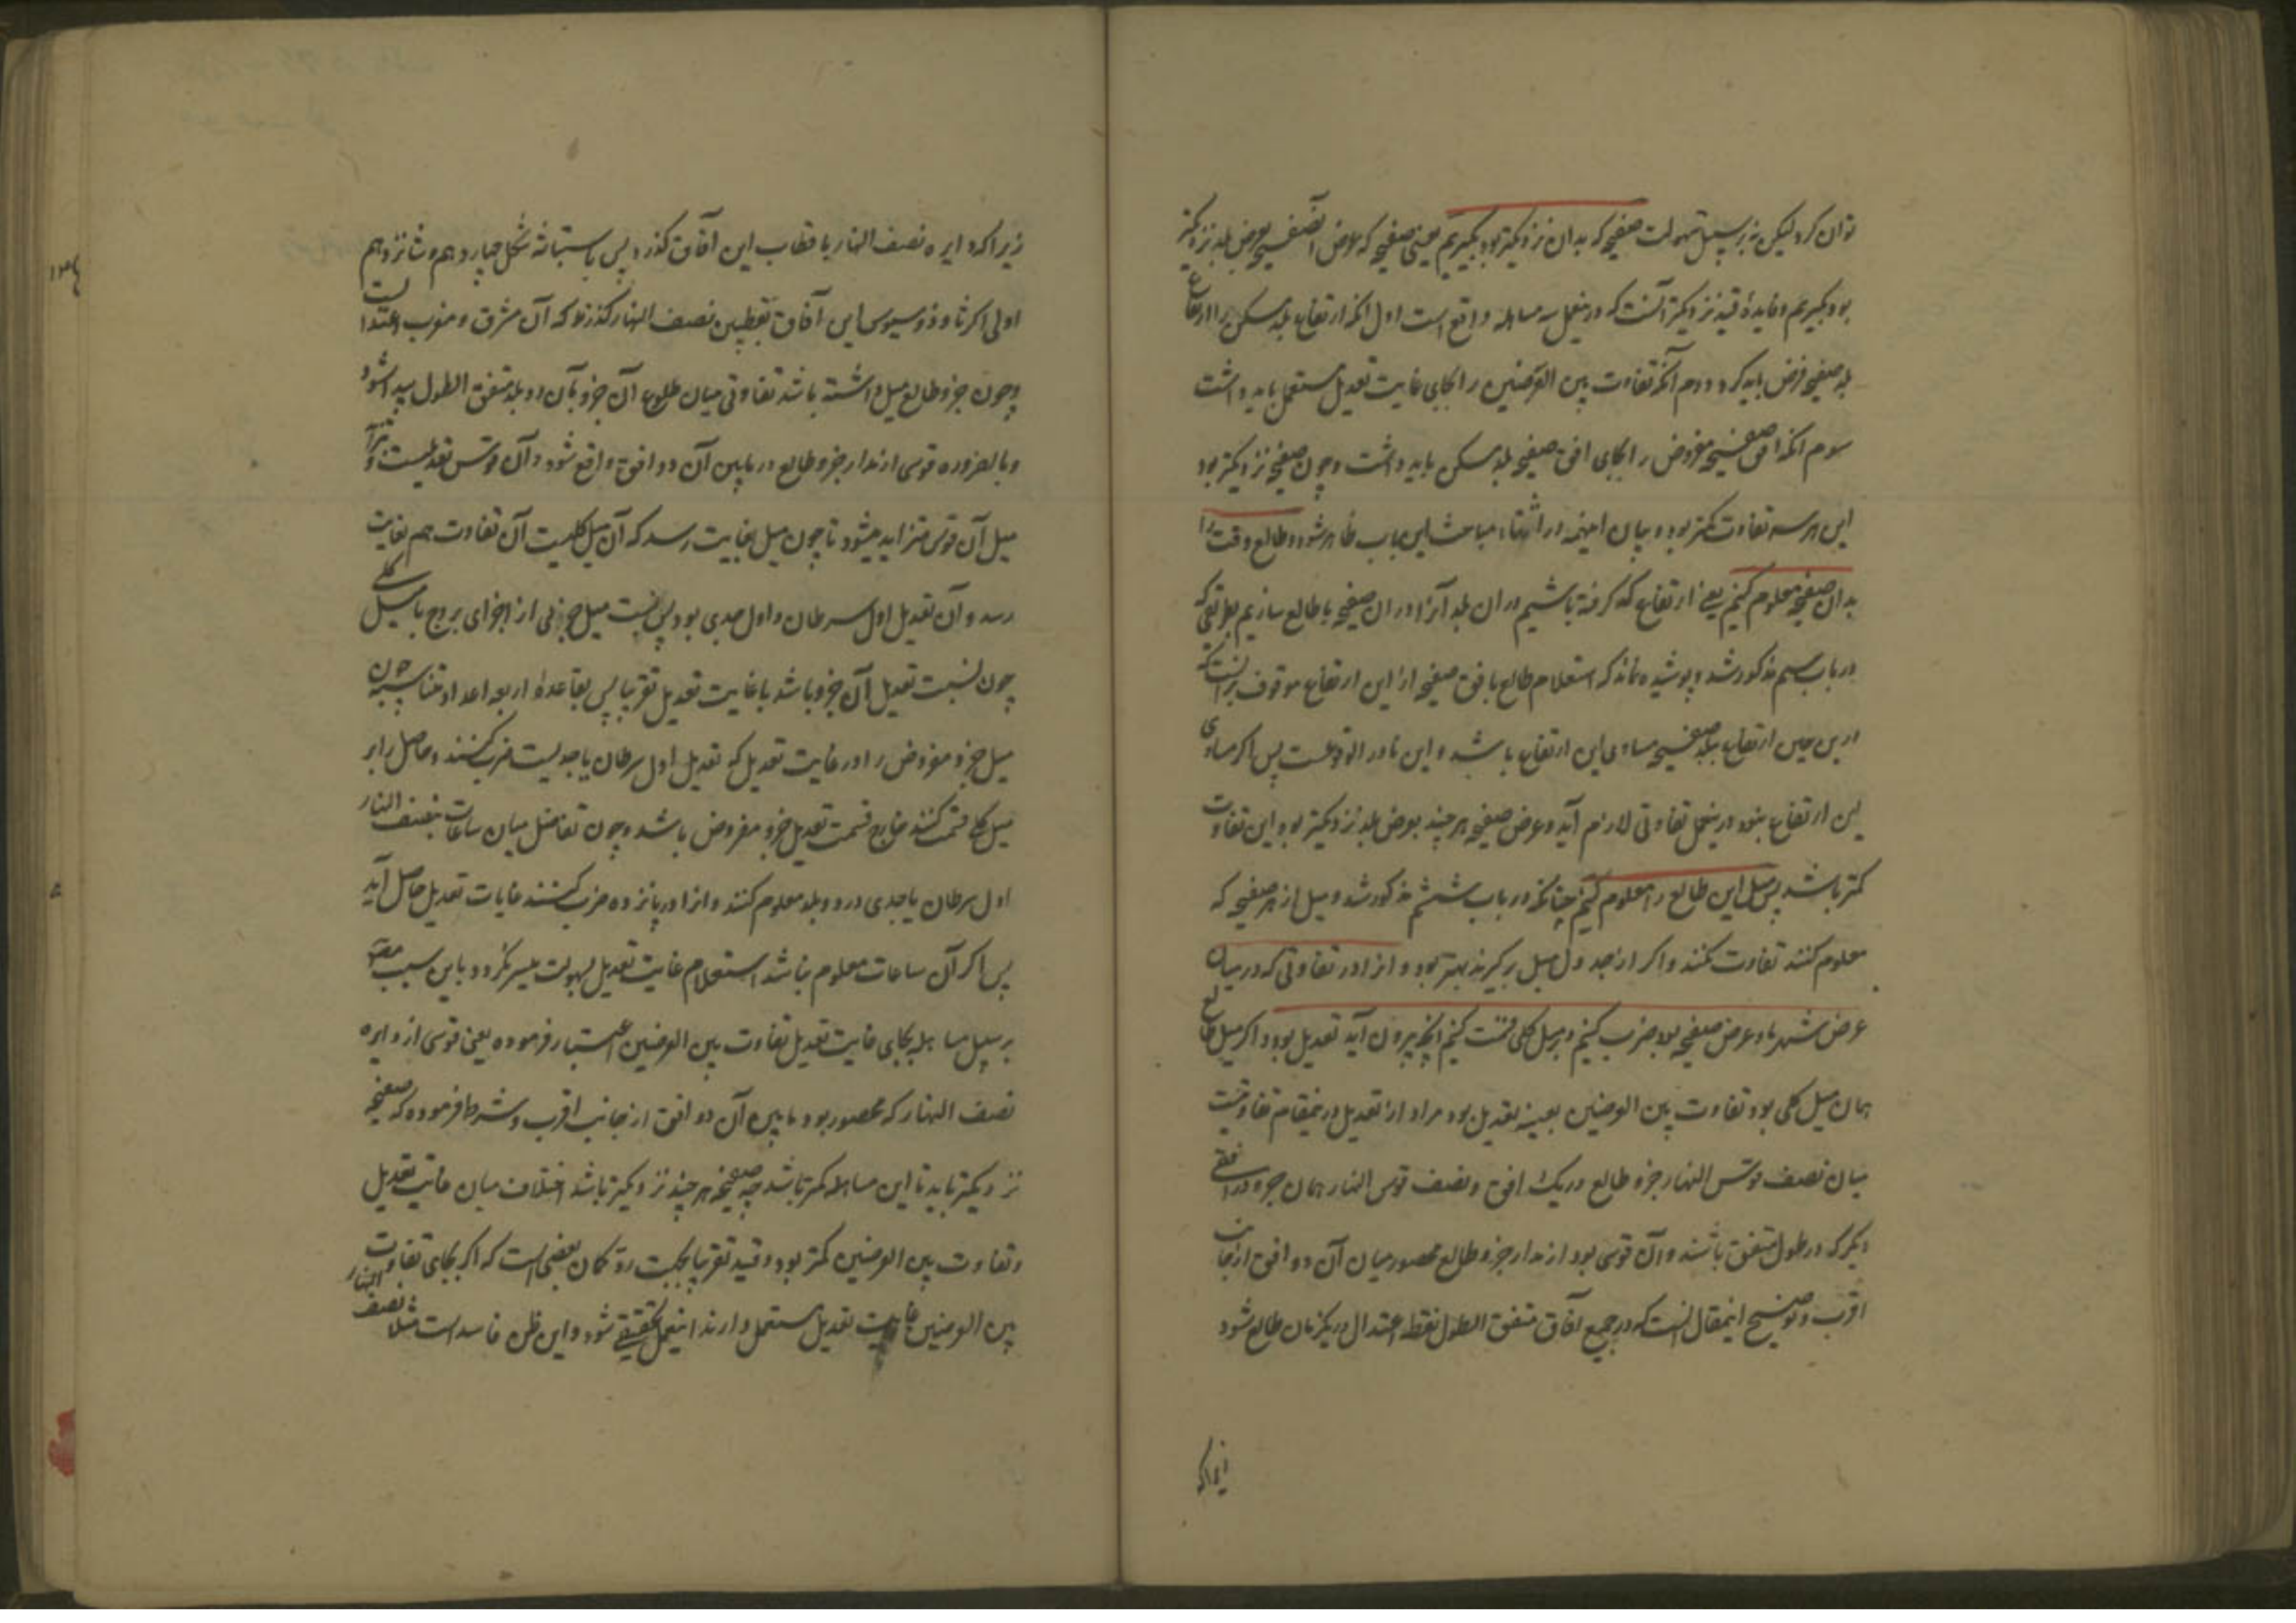 توان کرد لیکن نه بر سبیل سهولت صفیحه که بدان نزدیکتر بود بگیریم یعنی صفیحه که عرض آن صفیحه بعرض بلد نزدیکتر
بود بگیریم و فایدهٔ قید نزدیکتر آنست که درینعمل سه مساهله واقع است اول آنکه ارتفاع بلد مسکن را ارتفاع
بلد صفیحه فرض باید کرد دوم آنکه تفاوت بین العرضین را بجای غایت تعدیل مستعمل باید داشت
سوم آنکه افق صفیحه مفروض را بجای افق صفیحه بلد مسکن باید داشت و چون صفیحه نزدیکتر بود
این هر سه تفاوت کمتر بود و بیان اینهمه در اثناء مباحث این باب ظاهر شود و طالع وقت را
بدان صفیحه معلوم کنیم یعنی ارتفاع که گرفته باشیم در آن بلد آنرا در آن صفیحه با طالع سازیم بطریقی که
در باب سیم مذکور شد و پوشیده نماند که استعلام طالع بافق صفیحه ازین ارتفاع موقوف بر آنست که
درین حین ارتفاع بلد صفیحه مساوی این ارتفاع باشد و این نادر الوقوعست پس اگر مساوی
این ارتفاع نبود درینعمل تفاوتی لازم آید و عرض صفیحه هر چند بعرض بلد نزدیکتر بود این تفاوت
کمتر باشد پس میل این طالع را معلوم کنیم چنانکه در باب ششم مذکور شد و میل از هر صفیحه که
معلوم کنند تفاوت نکند و اگر از جدول میل برگیرند بهتر بود و آنرا در تفاوتی که در میان
عرض شهر ما و عرض صفیحه بود ضرب کنیم و بر میل کلی قسمت کنیم آنچه بیرون آید تعدیل بود و اگر میل طالع
همان میل کلی بود تفاوت بین العرضین بعینه تعدیل بود مراد از تعدیل درینمقام تفاوتیست
میان نصف قوس النهار جزو طالع در یک افق و نصف قوس النهار همان جزو در افقی
دیگر که در طول متفق باشند و آن قوسی بود از مدار جزو طالع محصور میان آن دو افق از جانب
اقرب و توضیح اینمقال آنست که در جمیع آفاق متفق الطول نقطه اعتدال در یکزمان طالع شود
زیراکه
زیراکه دایره نصف النهار باقطاب این آفاق گذرد پس باستبانه شکل چهاردهم و شانزدهم
اولی اکر ثاوذوسیوس این آفاق بقطبین نصف النهار گذرند که آن مشرق و مغرب اعتدالست
و چون جزو طالع میل داشته باشد تفاوتی میان طلوع آن جزو بآن دو بلد متفق الطول پیدا شود
و بالضروره قوسی از مدار جزو طالع در مابین آن دو افق واقع شود و آن قوس تعدیلست و
میل آن قوس متزاید میشود تا چون میل بغایت رسد که آن میل کلیست آن تفاوت هم بغایت
رسد و آن تعدیل اول سرطان و اول جدی بود پس نسبت میل جزئی از اجزای بروج با میل کلی
چون نسبت تعدیل آن جزو باشد با غایت تعدیل تقریبا پس بقاعدهٔ اربعه اعداد متناسبه چون
میل جزو مفروض را در غایت تعدیل که تعدیل اول سرطان یا جدیست ضرب کنند و حاصل را بر
میل کلی قسمت کنند خارج قسمت تعدیل جزو مفروض باشد و چون تفاضل میان ساعات نصف النهار
اول سرطان یا جدی در دو بلد معلوم کنند و آنرا در پانزده ضرب کنند غایات تعدیل حاصل آید
پس اگر آن ساعات معلوم نباشد استعلام غایت تعدیل بسهولت میسر نگردد باین سبب
بر سبیل مساهله بجای غایت تعدیل تفاوت بین العرضین اعتبار فرموده یعنی قوسی از دایره
نصف النهار که محصور بود مابین آن دو افق از جانب اقرب و شرط فرموده که صفیحه
نزدیکتر باید تا این مساهله کمتر باشد چه صفیحه هر چند نزدیکتر باشد اختلاف میان غایت تعدیل
و تفاوت بین العرضین کمتر بود و قید تقریبا بجهت رد گمان بعضی است که اگر بجای تفاوت
بین العرضین غایت تعدیل مستعمل دارند اینعمل تحقیقی شود و این ظن فاسد است مثلا نصف النهار